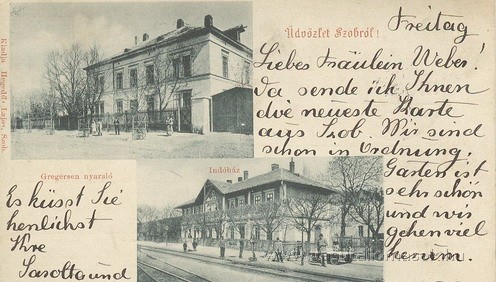 Freitag
Üdvözlet Szobról!
Liebes Fräulein Weber!
Da sende ich Ihnen
die neueste Karte
aus Szob. Wir sind
schon in Ordnung.
Garten ist
sehr schön
und wir
gehen viel
herum.
Gregersen nyaraló
Indóház
Es küsst Sie
herzlichst
Ihre
und
Kiadja Hegedűs Lajos, Szob.